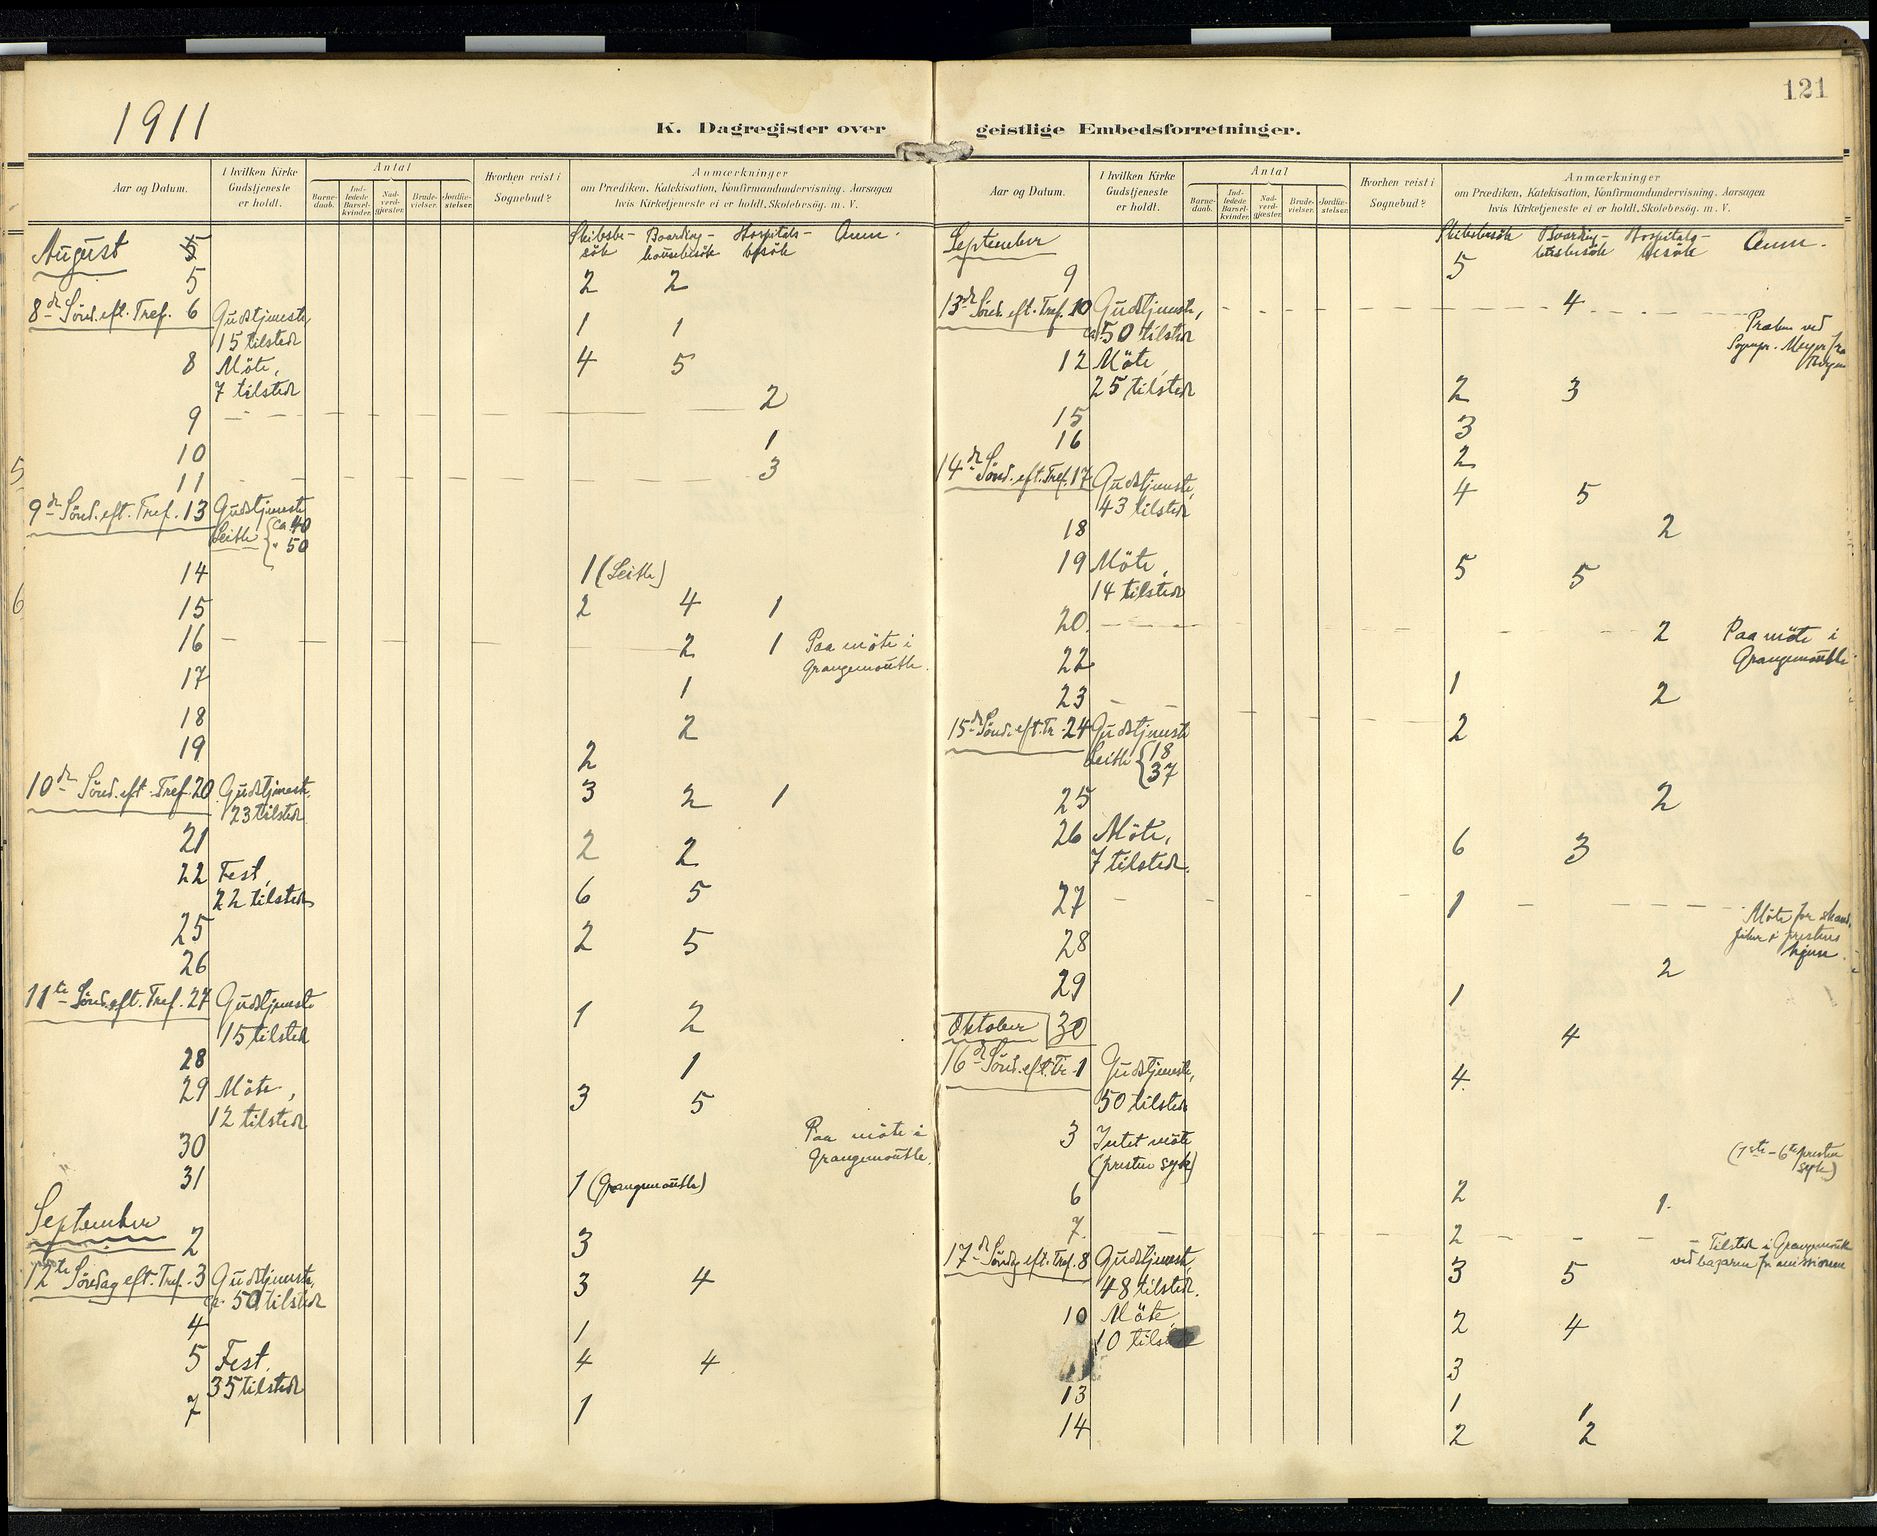 121
1911
K. Dagregister over geistlige Embedsforretninger.
Aar og Datum.
I hvilken Kirke Gudstjeneste er holdt.
Antal
Barne-daab.
Ind-ledede Barsel-kvinder.
Nad-verd-gjester.
Brude-vielser.
Jordfæ-stelser.
Hvorhen reist i Sognebud?
Anmærkninger
om Prædiken, Katekisation, Konfirmandundervisning. Aarsagen
hvis Kirketjeneste ei er holdt. Skolebesøg. m. V.
Skibsbe-søk Boarding-housebesök Hospitals-besök Anm.
August
5 2 2
8de Sönd. eft. Tref. 6 Gudstjeneste, 1 1
15 tilstede
8 Möte, 4 5
7 tilstede
9 2
10 1
11 3
9de Sönd. eft. Tref. 13 Gudstjeneste
Leith { ca 40
" 50
14 1 (Leith)
15 2 4 1
16 2 1 Paa möte i
Grangemouth.
17 1
18 2
19 2
10de Sönd. eft. Tref. 20 Gudstjeneste, 3 2 1
23 tilstede
21 2 2
22 Fest, 6 5
22 tilstede
25 2 5
26
11te Sönd. eft. Tref. 27 Gudstjeneste 1 2
15 tilstede
28 1
29 Möte, 3 5
12 tilstede
30 Paa möte i
Grangemouth.
31 1 (Grangemouth)
September
2 3
12te Söndag eft. Tref. 3 Gudstjeneste, 3 4
ca. 50 tilstede
4 1
5 Fest, 4 4
35 tilstede
7 1
Aar og Datum.
I hvilken Kirke Gudstjeneste er holdt.
Antal
Barne-daab.
Ind-ledede Barsel-kvinder.
Nad-verd-gjester.
Brude-vielser.
Jordfæ-stelser.
Hvorhen reist i Sognebud?
Anmærkninger
om Prædiken, Katekisation, Konfirmandundervisning. Aarsagen
hvis Kirketjeneste ei er holdt. Skolebesøg. m. V.
Skibsbesök Boarding-husbesök Hospitals-besök Anm.
September
9 5
13de Sönd. eft. Tref. 10 Gudstjeneste, 4 Præken ved
ca 50 tilstede Sognepr. Meyer fra
12 Möte, 2 3
25 tilstede
15 3
16 2
14de Sönd. eft. Tref. 17 Gudstjeneste, 4 5
43 tilstede
18 2
19 Möte, 5 5
14 tilstede
20. 2 Paa möte i
Grangemouth
22 1 2
23 2
15de Sönd. eft. Tr. 24 Gudstjeneste
Leith { 18
37
25 2
26 Möte, 6 3
7 tilstede.
27 1 Möte for skand.
piker i prestens
hjem.
28 2
29 1
30 4
Oktober
16de Sönd. eft. Tr. 1 Gudstjeneste, 4.
50 tilstede
3 Intet möte (1ste - 6te presten
(presten syk) syk)
6 2 1.
7. 2 Tilstede i Grangemouth
ved bazaren for missionen
17de Söndag eft. Tref. 8 Gudstjeneste, 3 5
48 tilstede.
10 Möte, 2 4
10 tilstede
3
13 1 1
14 2 2